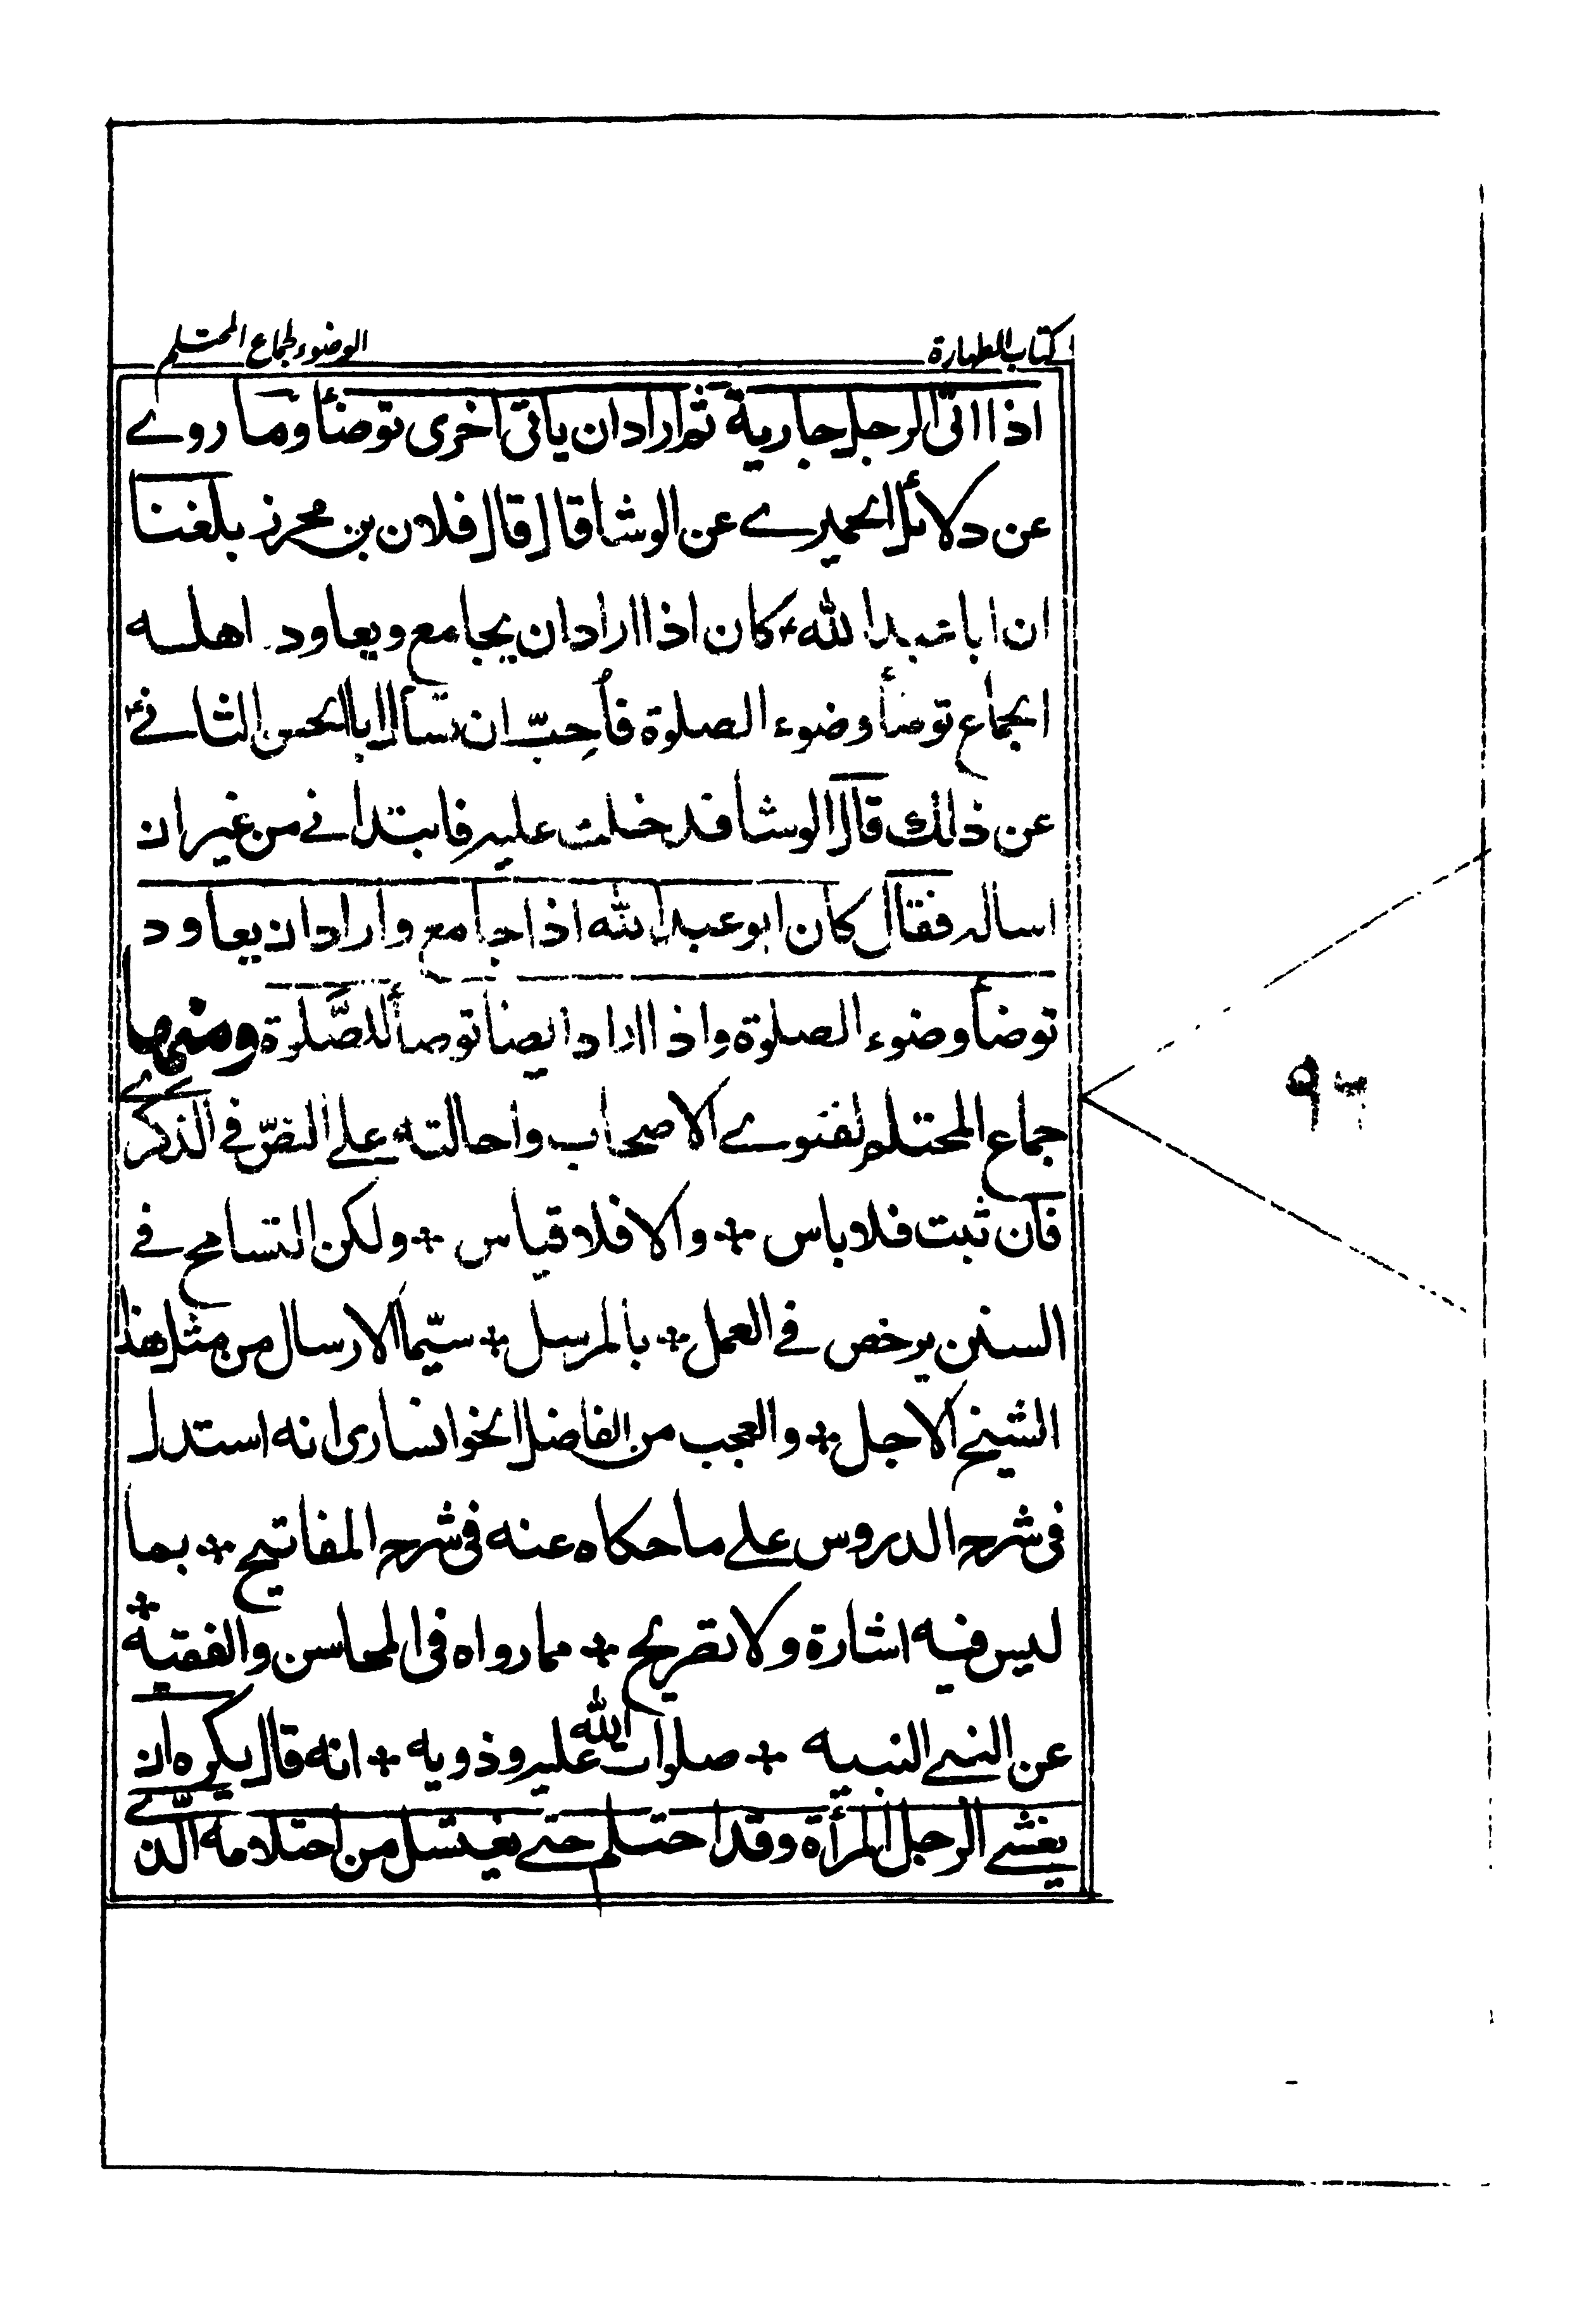 كتاب الطهارة
الوضوء لجماع المحتلم
اذا اتى الرجل جارية ثم اراد ان ياتى اخرى توضأ وما روے
عن دلائل الحميرے عن الوشا قال قال فلان بن محرز بلغنا
ان ابا عبد الله ع كان اذا اراد ان يجامع ويعاود اهله
الجماع توضأ وضوء الصلوة فأحبّ ان تسأل ابا الحسن الثانےؑ
عن ذلك قال الوشا فدخلت عليه فابتدانے من غير ان
اساله فقال كان ابو عبد الله اذا جامع واراد ان يعاود
توضأ وضوء الصلوة واذا اراد ايضا توضأ للصّلوة ومنها
جماع المحتلم لفتوے الاصحاب واحالته علے النصّ فے الذكرے
فان ثبت فلا باس + والا فلا قياس + ولكن التسامح فے
السنن يرخص فے العمل + بالمرسل + سيّما الارسال من مثل هذا
الشيخ الاجل + والعجب من الفاضل الخوانسارى انه استدل
فى شرح الدروس علے ما حكاه عنه فى شرح المفاتيح + بما
ليس فيه اشارة ولا تصريح + مما رواه فى المحاسن والفقيه +
عن النبے النبيه + صلوات الله عليه وذويه + انه قال يكره ان
يغشے الرجل المرأة وقد احتلم حتے يغتسل من احتلامه الّذے
٩٦